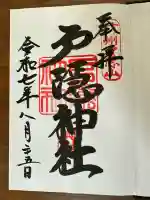 奉拝
戸隠神社
令和七年八月二五日